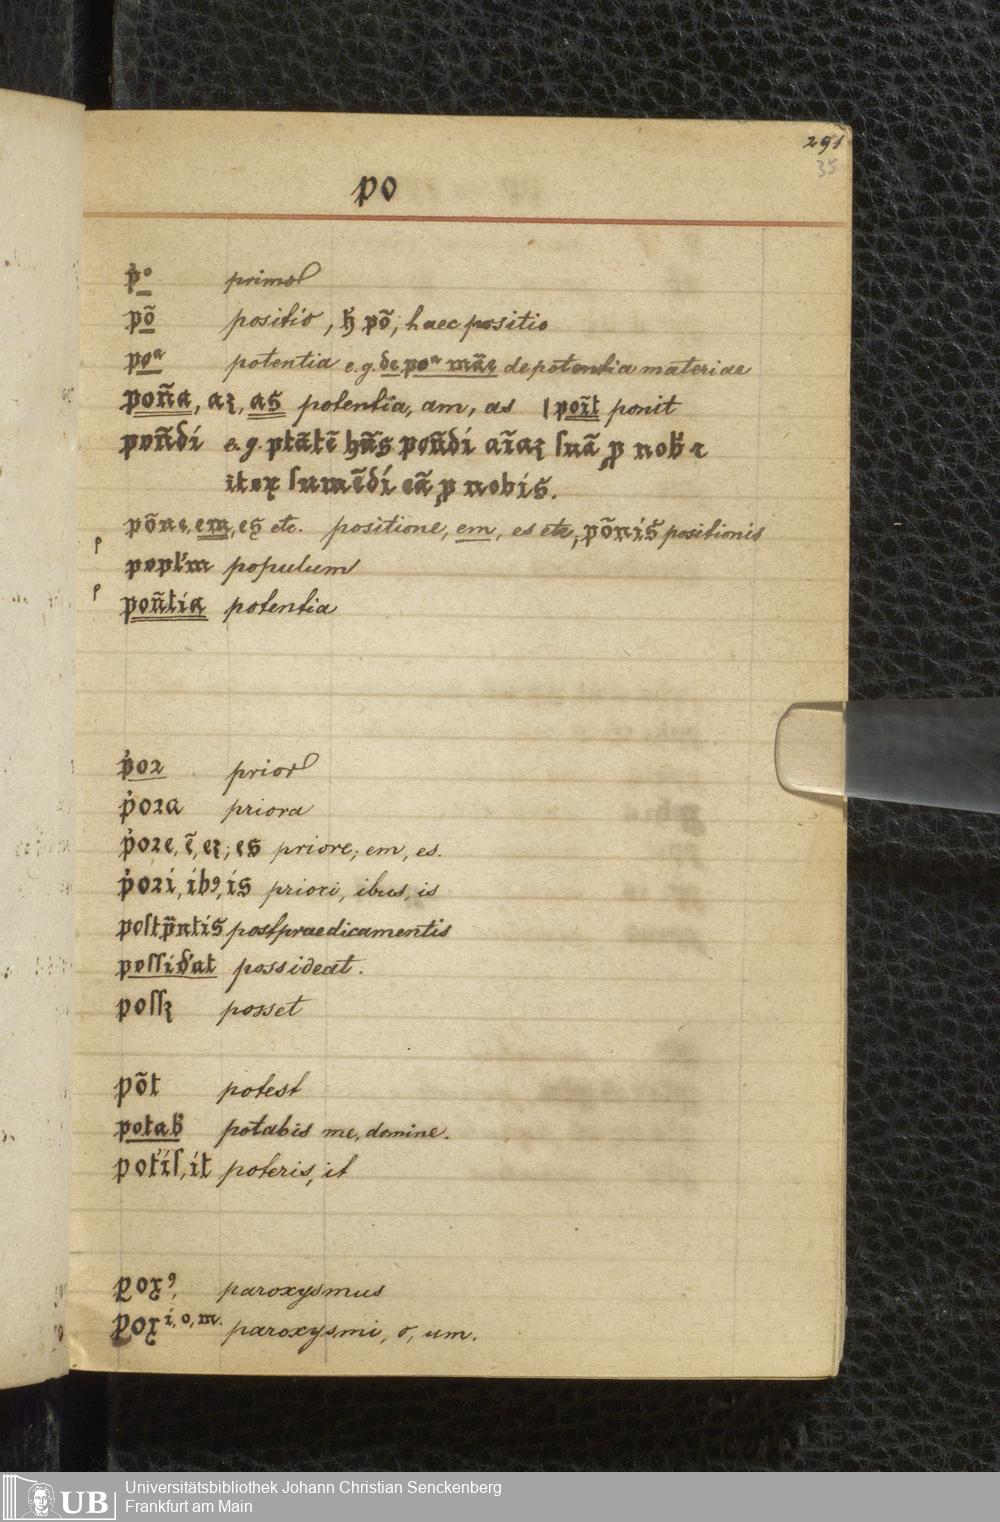 291
35
po
p͛º primo
põ positio, ħ põ, haec positio
poª potentia e.g. de poª mãe de potentia materiae
poña, aʒ, as potentia, am, as | poĩt ponit
ponñdí e.g. ptãtẽ hña͂s poñdí aĩaʒ ſuã ꝓ nob̃ ⁊
iteꝝ ſumẽdí eã ꝓ nobis.
põne, em, es etc. positione, em, es etc, põnis̃ positionis
p popl̃m populum
p poñtia potentia
p͛oꝛ prior
p͛oꝛa priora
p͛oꝛe, ẽ, eʒ, es priore, em, es.
p͛oꝛi, ibꝰ, is priori, ibus, is
poſtp̃ntis postpraedicamentis
poſſid͛at possideat.
poſſʒ posset
põt potest
potab̃ potabis me, domine.
pot͛iſ, it poteris, it
ꝑoxꝰ, paroxysmus
ꝑox i, o, m. paroxysmi, o, um.
Universitätsbibliothek Johann Christian Senckenberg
Frankfurt am Main
UB